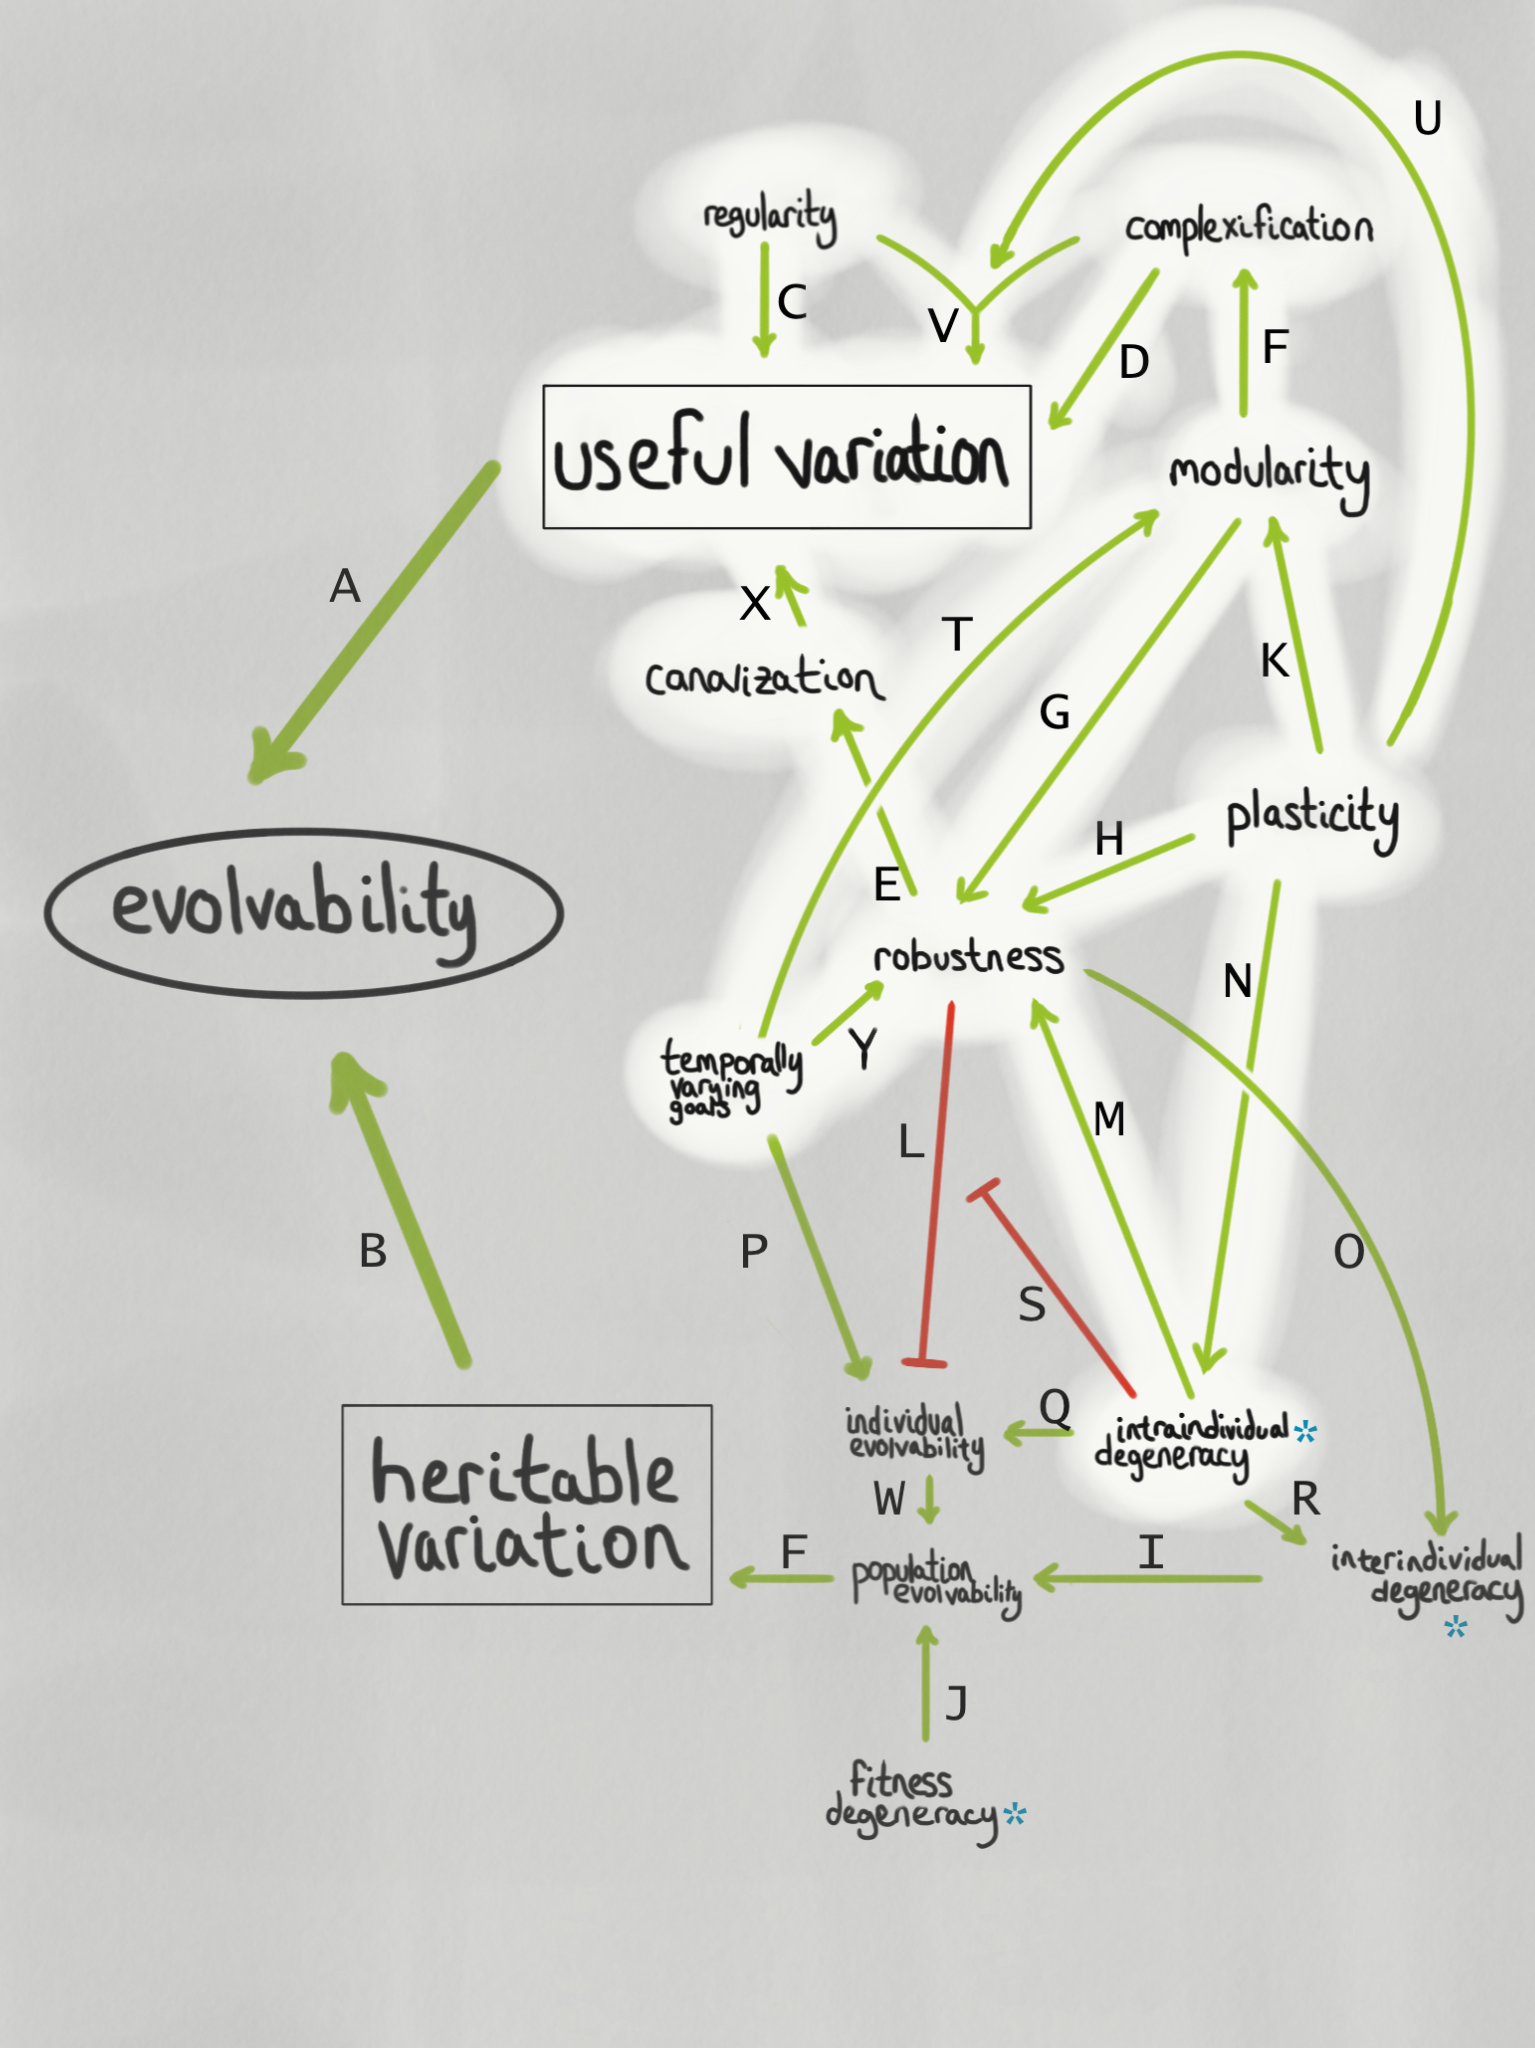 U
regularity
complexification
C
V
D
F
useful variation
modularity
A
X
T
canalization
G
K
plasticity
H
E
evolvability
robustness
N
temporally
varying
goals
Y
L
M
B
P
S
O
individual
evolvability
Q
intraindividual *
degeneracy
heritable
variation
W
R
F
population
evolvability
I
interindividual
degeneracy
*
J
fitness
degeneracy *